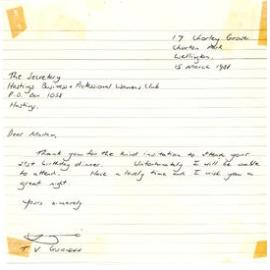 17 Chorley Grove
Churton Park
Wellington
15 March 1988
The Secretary
Hastings Business & Professional Womens Club
P.O. Box 1058
Hastings.
Dear Madam,
Thank you for the kind invitation to attend your
21st birthday dinner. Unfortunately I will be unable
to attend. Have a lovely time and I wish you a
great night
Yours sincerely
T V